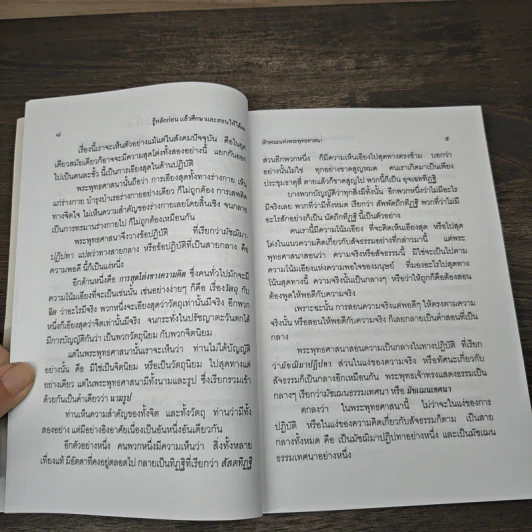 ๘
รู้หลักก่อน แล้วศึกษาและสอนให้ได้ผล
เรื่องนี้เราจะเห็นตัวอย่างแม้แต่ในสังคมปัจจุบัน คือในยุค
เดียวสมัยเดียวก็อาจจะมีความสุดโต่งทั้งสองอย่างนี้ แยกกันออก
ไปเป็นคนละขั้ว นี้เป็นการเอียงสุดในด้านปฏิบัติ
พระพุทธศาสนานั้นถือว่า การเอียงสุดทั้งทางร่างกาย เห็น
แก่ร่างกาย บำรุงบำเรอร่างกายอย่างเดียว ก็ไม่ถูกต้อง การเสพติด
ทางจิตใจ ไม่เห็นความสำคัญของร่างกายเลยโดยสิ้นเชิง จนกลาย
เป็นการทรมานร่างกายไป ก็ไม่ถูกต้องเหมือนกัน
พระพุทธศาสนาจึงวางข้อปฏิบัติ ที่เรียกว่ามัชฌิมา-
ปฏิปทา แปลว่าทางสายกลาง หรือข้อปฏิบัติที่เป็นสายกลาง คือ
ความพอดี นี้ก็เป็นแง่หนึ่ง
อีกด้านหนึ่งคือ การสุดโต่งทางความคิด ซึ่งคนทั่วไปมักจะมี
ความโน้มเอียงที่จะเป็นเช่นนั้น เช่นอย่างง่ายๆ ก็คือ เรื่องวัตถุ กับ
จิต ว่าอะไรมีจริง พวกหนึ่งจะเอียงสุดว่าวัตถุเท่านั้นมีจริง อีกพวก
หนึ่งก็เอียงสุดว่าจิตเท่านั้นมีจริง จนกระทั่งในปรัชญาตะวันตกได้
มีการบัญญัติกันว่า เป็นพวกวัตถุนิยม กับพวกจิตนิยม
แต่ในพระพุทธศาสนานั้นเราจะเห็นว่า ท่านไม่ได้บัญญัติ
อย่างนั้น คือ มิใช่เป็นจิตนิยม หรือเป็นวัตถุนิยม ไปสุดทางแต่
อย่างเดียว แต่ในพระพุทธศาสนามีทั้งนามและรูป ซึ่งเรียกรวมเข้า
ด้วยกันเป็นคำเดียวว่า นามรูป
ท่านเห็นความสำคัญของทั้งจิต และทั้งวัตถุ ท่านว่ามีทั้ง
สองอย่าง แต่มีอย่างอิงอาศัยเนื่องเป็นอันหนึ่งอันเดียวกัน
อีกตัวอย่างหนึ่ง คนพวกหนึ่งมีความเห็นว่า สิ่งทั้งหลาย
เที่ยงแท้ มีอัตตาที่คงอยู่ตลอดไป กลายเป็นทิฏฐิที่เรียกว่า สัสสตทิฏฐิ
ลักษณะแห่งพระพุทธศาสนา
๙
ส่วนอีกพวกหนึ่ง ก็มีความเห็นเอียงไปสุดทางตรงข้าม บอกว่า
อย่างนั้นไม่ใช่ ทุกอย่างขาดสูญหมด คนเราเกิดมาเป็นเพียง
ประชุมธาตุสี่ ตายแล้วก็ขาดสูญไป พวกนี้ก็เป็น อุจเฉททิฏฐิ
บางพวกบัญญัติว่าทุกสิ่งมีทั้งนั้น อีกพวกหนึ่งว่าไม่มีอะไร
มีจริงเลย พวกที่ว่ามีทั้งหมด เรียกว่า สัพพัตถิกทิฏฐิ พวกที่ว่าไม่มี
อะไรสักอย่างก็เป็น นัตถิกทิฏฐิ นี้เป็นตัวอย่าง
คนเรานี้มีความโน้มเอียง ที่จะคิดเห็นเอียงสุด หรือไปสุด
โต่งในแนวความคิดเกี่ยวกับสัจธรรมอย่างที่กล่าวมานี้ แต่พระ
พุทธศาสนาสอนว่า ความจริงหรือสัจธรรมนี้ มิใช่จะเป็นไปตาม
ความโน้มเอียงแห่งความพอใจของมนุษย์ ที่มองอะไรไปสุดทาง
โน้นสุดทางนี้ ความจริงนั้นเป็นกลางๆ หรือว่าให้ถูกก็คือต้องสอน
ต้องพูดให้พอดีกับความจริง
เพราะฉะนั้น การสอนความจริงแต่พอดีๆ ให้ตรงตามความ
จริงนั้น หรือสอนให้พอดีกับความจริง ก็เลยกลายเป็นคำสอนที่เป็น
กลาง
พระพุทธศาสนาสอนความเป็นกลางในทางปฏิบัติ ที่เรียก
ว่ามัชฌิมาปฏิปทา ส่วนในแง่ของความจริง หรือทัศนะเกี่ยวกับ
สัจธรรมก็เป็นกลางอีกเหมือนกัน พระพุทธเจ้าทรงแสดงธรรมเป็น
กลางๆ เรียกว่ามัชเฌนธรรมเทศนา หรือ มัชเฌนเทศนา
ตกลงว่า ในพระพุทธศาสนานี้ ไม่ว่าจะในแง่ของการ
ปฏิบัติ หรือในแง่ของความคิดเกี่ยวกับสัจธรรมก็ตาม เป็นสาย
กลางทั้งหมด คือ เป็นมัชฌิมาปฏิปทาอย่างหนึ่ง และเป็นมัชเฌน
ธรรมเทศนาอย่างหนึ่ง